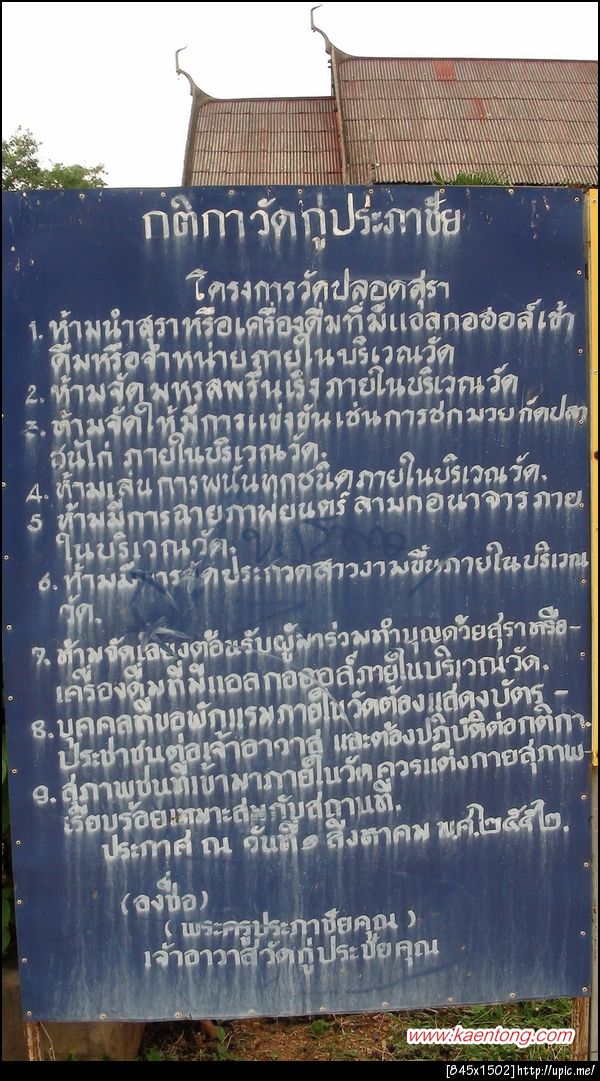 กติกาวัดกู่ประภาชัย
โครงการวัดปลอดสุรา
1. ห้ามนำสุราหรือเครื่องดื่มที่มีแอลกอฮอล์เข้า
ดื่มหรือจำหน่าย ภายในบริเวณวัด
2. ห้ามจัด มหรสพรื่นเริง ภายในบริเวณวัด
3. ห้ามจัดให้มีการแข่งขัน เช่น การชกมวย กัดปลา
ชนไก่ ภายในบริเวณวัด.
4. ห้ามเล่น การพนันทุกชนิด ภายในบริเวณวัด.
5 ห้ามมีการฉายภาพยนตร์ ลามกอนาจาร ภาย
ในบริเวณวัด.
6. ห้ามมีการจัดประกวดสาวงามขึ้นภายในบริเวณ
วัด.
7. ห้ามจัดเลี้ยงต้อนรับผู้มาร่วมทำบุญด้วยสุราหรือ-
เครื่องดื่มที่มีแอลกอฮอล์ภายในบริเวณวัด.
8. บุคคลที่ขอพักแรมภายในวัดต้องแสดงบัตร -
ประชาชนต่อเจ้าอาวาส และต้องปฏิบัติต่อกติกา.
9. สุภาพชนที่เข้ามาภายในวัด ควรแต่งกายสุภาพ-
เรียบร้อยเหมาะสมกับสถานที่.
ประกาศ ณ วันที่ ๑ สิงหาคม พ.ศ.๒๕๕๒.
(ลงชื่อ)
(พระครูประภาชัยคุณ)
เจ้าอาวาสวัดกู่ประชัยคุณ
www.kaentong.com
[845x1502]http://upic.me/